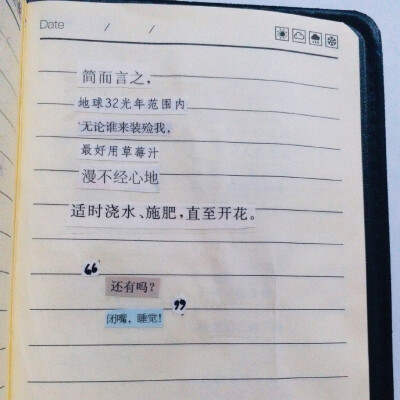 Date / /
简而言之，
地球32光年范围内
无论谁来装殓我，
最好用草莓汁
漫不经心地
适时浇水、施肥，直至开花。
“
还有吗？
闭嘴，睡觉！
”